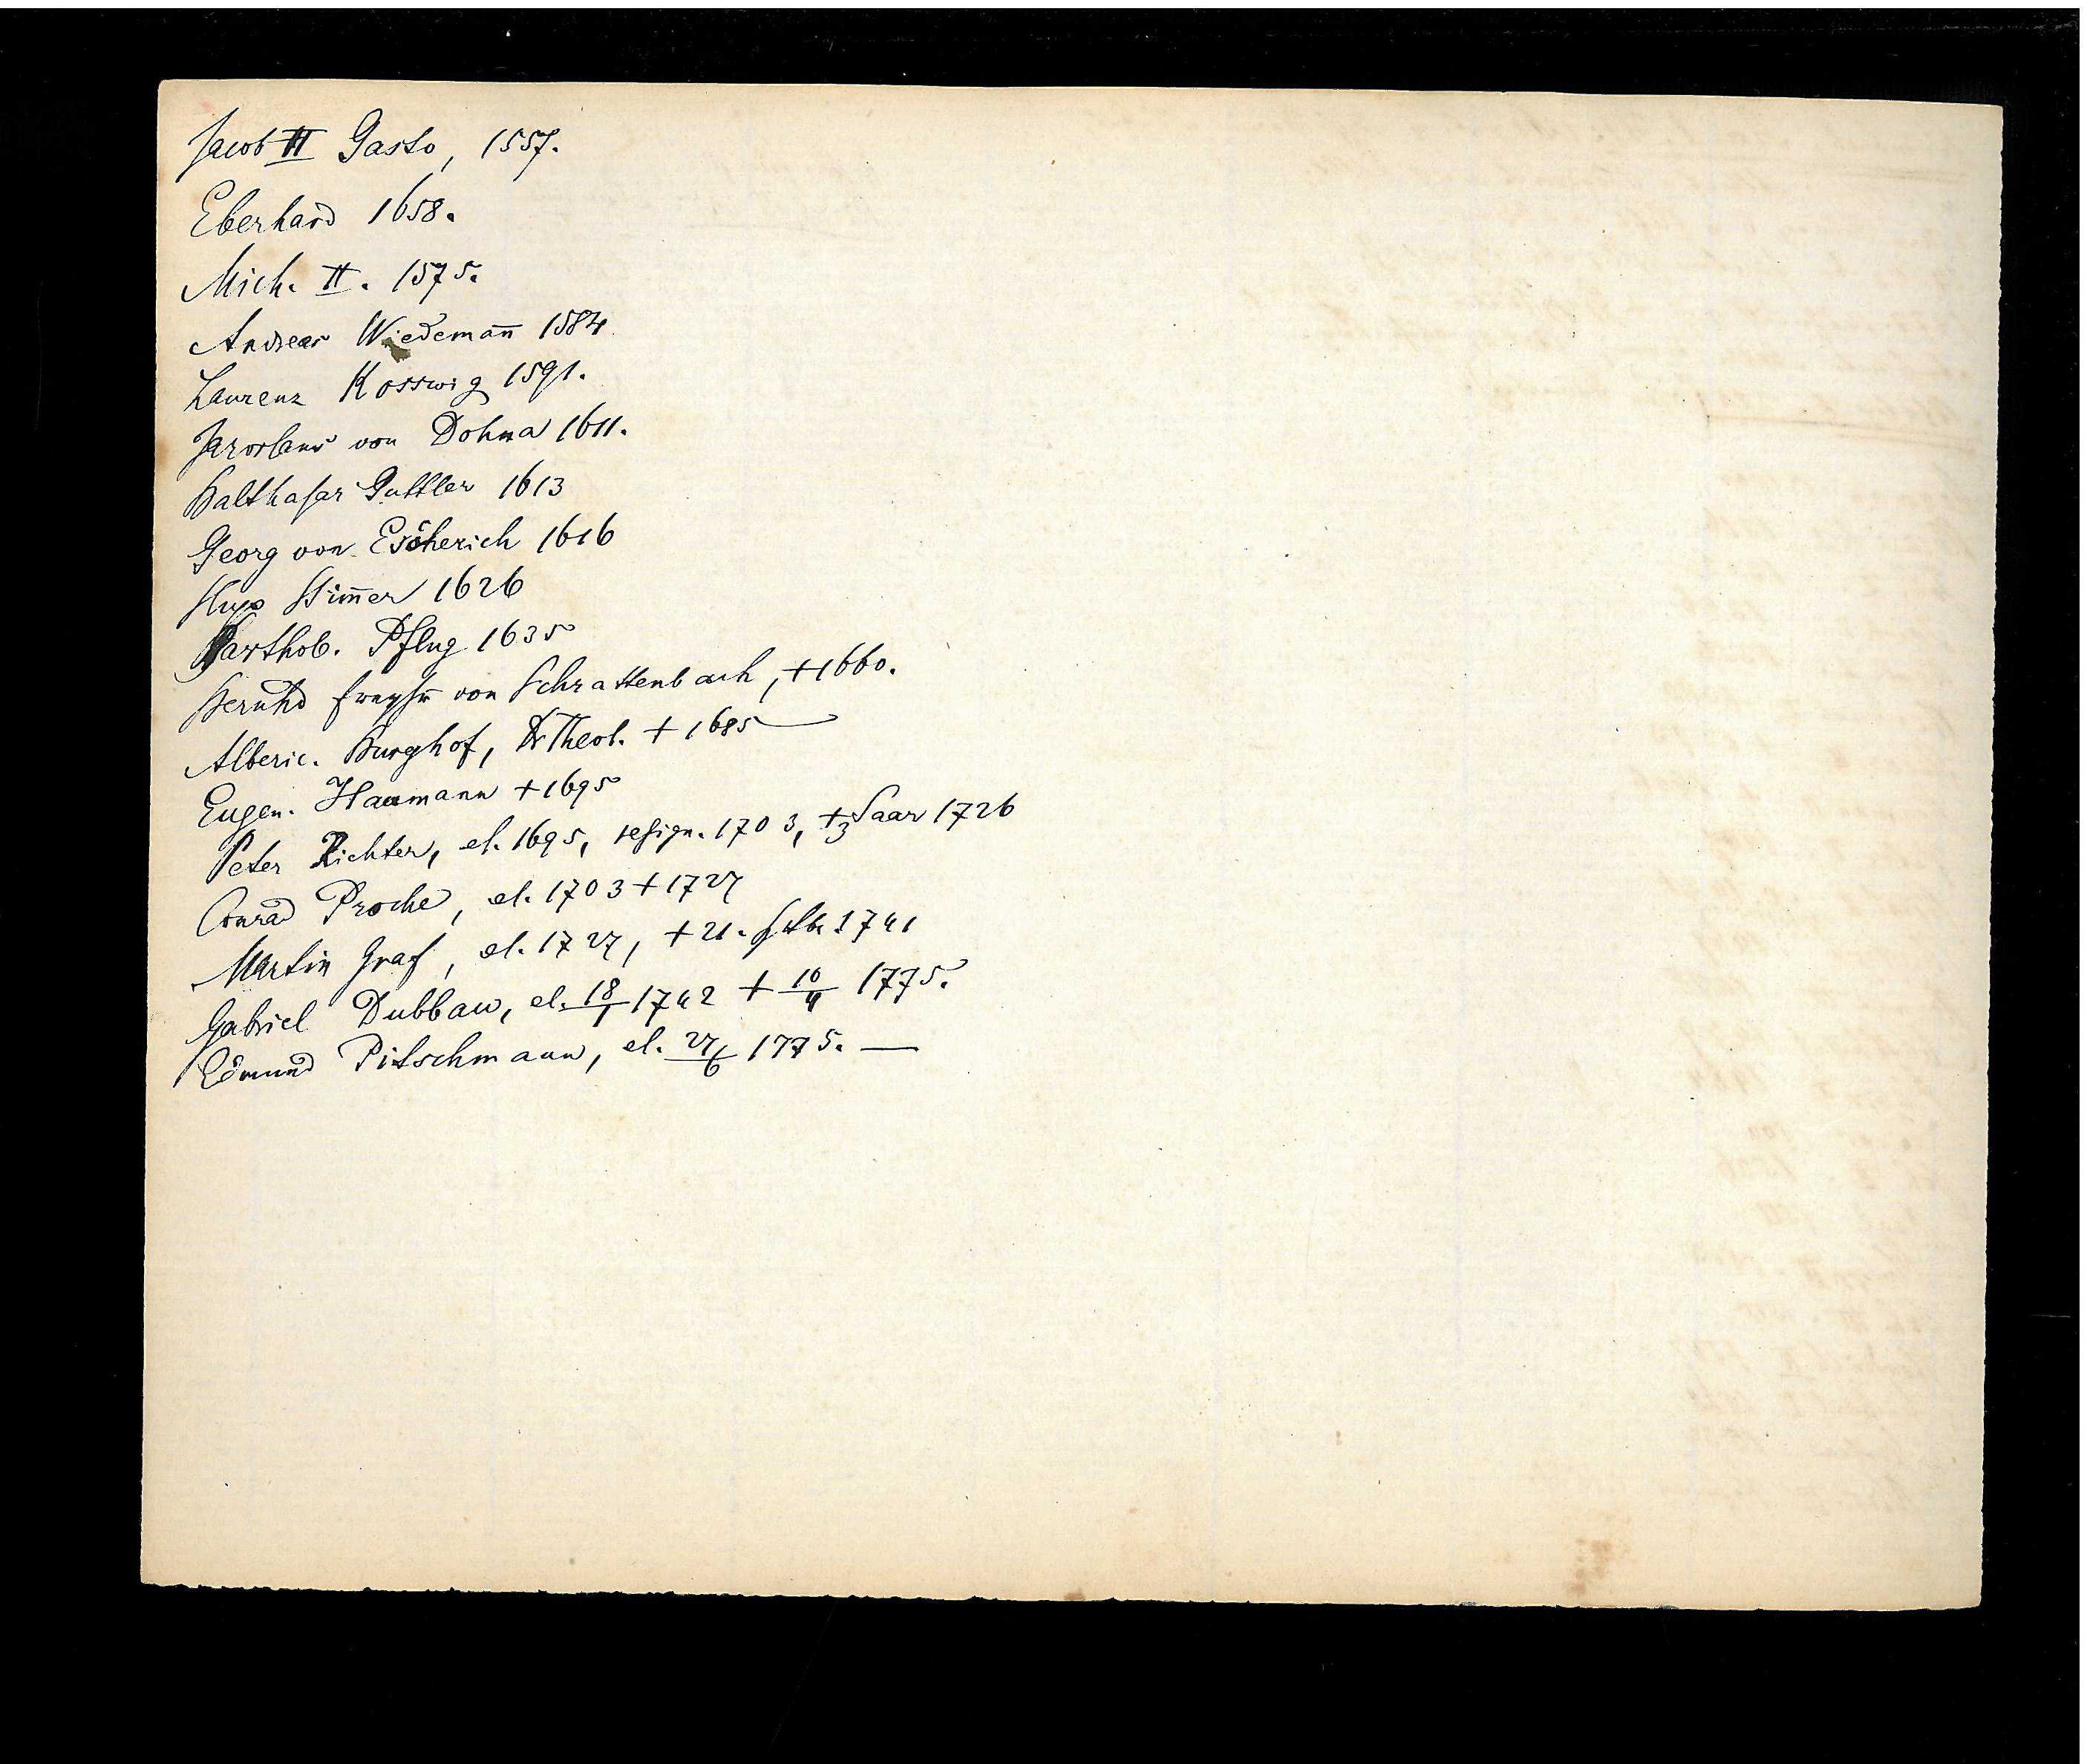 Jacob II Gasto, 1557.
Eberhard 1658.
Mich. II. 1575.
Andreas Wiedemañ 1584
Laurenz Kosswig 1591.
Jaroslaus von Dohna 1611.
Balthasar Guttler 1613
Georg von Escherich 1616
Hugo Stim̄er 1626
Barthol. Pflug 1635
Bernhd von Schrattenbach, +1660.
Alberic. Burghof, Dr Theol. + 1685
Eugen. Haumann +1695
Peter Richter, el. 1695, resign. 1703, + Saar 1726
Conrad Proche, el. 1703 + 1727
Martin Graf, el. 1727, + 21. 1741
Gabriel Dubbau, el. 18/1 1742 + 10/4 1775.
Edmund Pitschmann, el. 27/6 1775. —